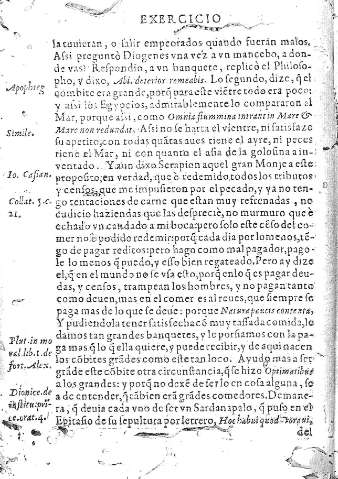 EXERCICIO
la tuuieran, o salir empeorados quando fueran malos.
Assi preguntò Diogenes vna vez a vn mancebo, a don-
de vas? Respondio, a vn banquete, replicò el Philoso-
pho, y dixo, Abi, deterior remeabis. Lo segundo, dize, q̃ el
combite era grande, porq̃ para este viẽtre todo era poco:
y assi los Egypcios, admirablemente lo compararon al
Mar, porque assi, como Omnia flumina intrant in Mare &
Mare non redundat. Assi no se harta el vientre, ni satisfaze
su apetito, con todas quãtas aues tiene el ayre, ni peces
tiene el Mar, ni con quanto el asia de la golosina a in-
ventado. Y aun dixo Serapion aquel gran Monje a este
proposito; en verdad, que è redemido todos los tributos
y censos, que me impusieron por el pecado, y ya no ten
go tentaciones de carne que estan muy refrenadas, no
cudicio haziendas que las desprecie, no murmuro que è
echado vn candado a mi boca pero solo este cẽso del co-
mer no è podido redemir porq̃ cada dia por lo menos, tẽ-
go de pagar redicos pero hago como mal pagador, pago
le lo menos q̃ puedo, y esso bien regateado. Pero ay dize
el, q̃ en el mundo no se vsa esto, porq̃ en lo q̃ es pagar deu-
das, y censos, trampean los hombres, y no pagan tanto
como deuen, mas en el comer es al reues, que siempre se
paga mas de lo que se deue: porque Natura paucis contenta,
Y pudiendola tener satisfecha cõ muy tassada comida, le
damos tan grandes banquetes, y le porfiamos con la pa-
ga mas q̃ lo q̃ ella quiere, y puede recibir, y de aqui nacen
los cõbites grãdes como este tan loco. Ayudò mas a ser
grãde este cõbite otra circunstancia, q̃ se hizo Optimatibus
a los grandes: y porq̃ no dexè de ser lo en cosa alguna, se
a de entender, q̃ tãbien erã grãdes comedores. De mane-
ra, q̃ deuia cada vno de ser vn Sardanapalo, q̃ puso en el
Epitafio de su sepultura por letrero, Hoc habui quod voraui,
del
Apophteg
Simile.
Io. Casian.
Collat. 5. c.
21.
Plut. in mo
ral lib. 1. de
fort. Alex.
Dionice. de
institu. prĩ-
ce. orat. 4.